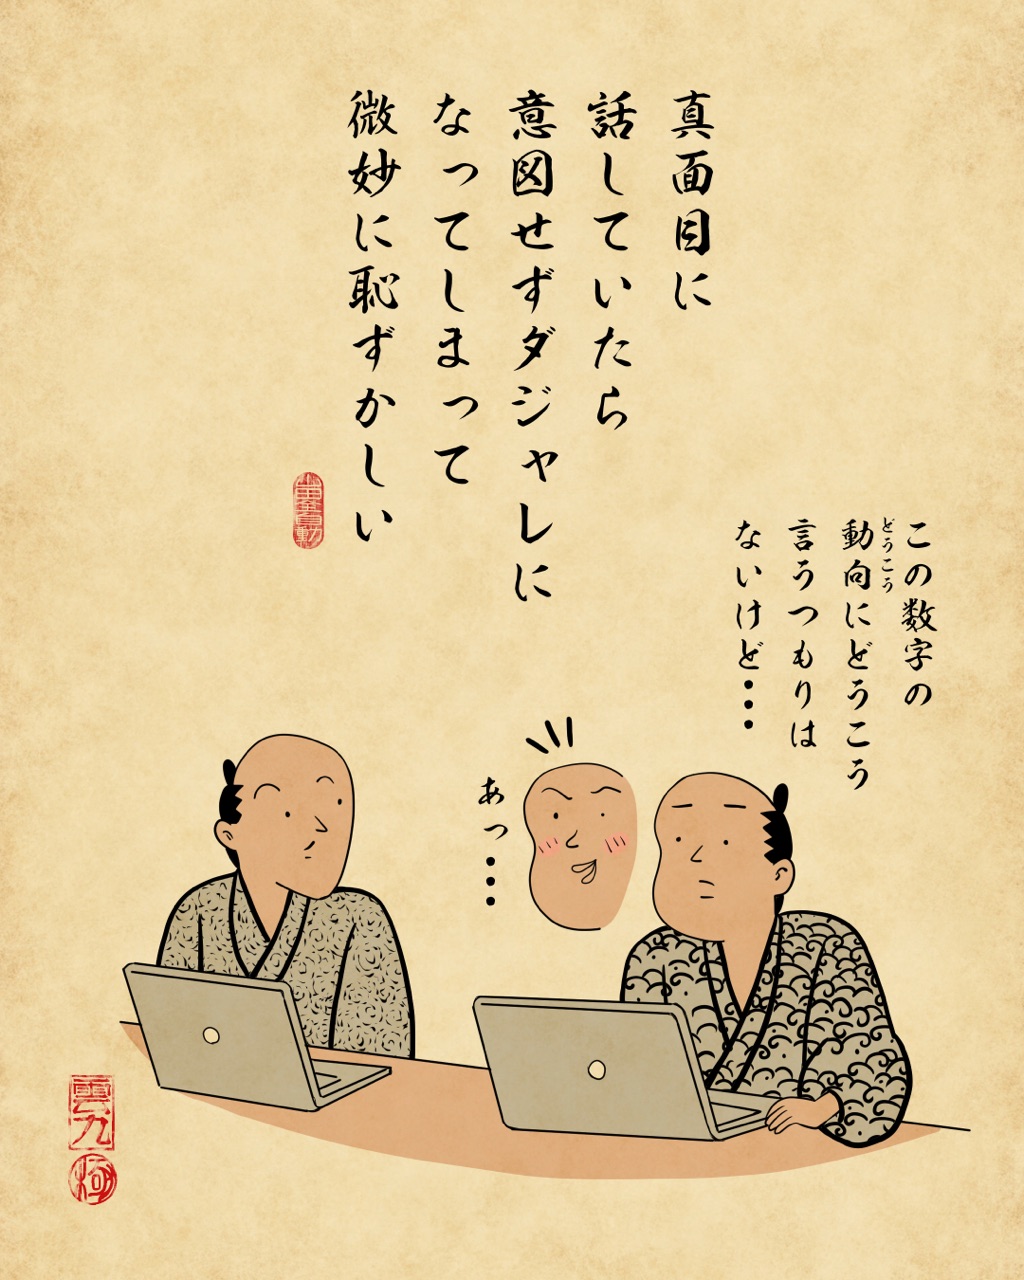 真面目に
話していたら
意図せずダジャレに
なってしまって
微妙に恥ずかしい
この数字の
動向にどうこう
どうこう
言うつもりは
ないけど・・・
あっ・・・